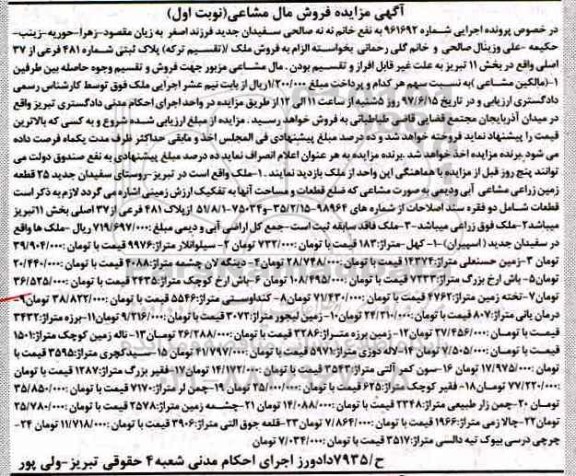 آگهی مزایده فروش مال مشاعی(نوبت اول)
در خصوص پرونده اجرایی شماره ۹۶۱۶۹۲ به نفع خانم ننه صالحی سفیدان جدید فرزند اصغر به زیان مقصود-زهرا-حوریه-زینب-
حکیمه -علی وزینال صالحی و خانم گلی رحمانی بخواسته الزام به فروش ملک /(تقسیم ترکه) پلاک ثبتی شماره ۴۸۱ فرعی از ۳۷
اصلی واقع در بخش ۱۱ تبریز به علت غیر قابل افراز و تقسیم بودن . مال مشاعی مزبور جهت فروش و تقسیم وجوه حاصله بین طرفین
۱-(مالکین مشاعی )به نسبت سهم هر کدام و پرداخت مبلغ ۱/۲۰۰/۰۰۰ریال از بابت نیم عشر اجرایی ملک فوق توسط کارشناس رسمی
دادگستری ارزیابی و در تاریخ ۹۷/۶/۱۵ روز شنبه از ساعت ۱۱ الی ۱۲ از طریق مزایده در واحد اجرای احکام مدنی دادگستری تبریز واقع
در میدان آذربایجان مجتمع قضایی قاضی طباطبائی به فروش خواهد رسید . مزایده از مبلغ ارزیابی شده شروع و به کسی که بالاترین
قیمت را پیشنهاد نماید فروخته خواهد شد و ده درصد مبلغ پیشنهادی فی المجلس اخذ و مابقی حداکثر ظرف مدت یکماه فرصت داده
می شود .برنده مزایده اخذ خواهد شد .برنده مزایده به هر عنوان اعلام انصراف نماید ده درصد مبلغ پیشنهادی به نفع صندوق دولت می
توانند پنج روز قبل از مزایده با هماهنگی این واحد از ملک بازدید نمایند . ۱-ملک واقع است در تبریز-روستای سفیدان جدید ۲۵ قطعه
زمین زراعی مشاعی آبی ودیمی به صورت مشاعی که ضلع قطعات و مساحت آنها به تفکیک ارزش زمینی اشاره می گردد لازم به ذکر است
قطعات شامل دو فقره سند اصلاحات از شماره های ۹۸۹۶۴-۳۵/۲/۱۵ و۷۵۰۳۴-۵۱/۸/۱ ازپلاک ۴۸۱ فرعی از ۳۷ اصلی بخش ۱۱تبریز
میباشد۲-ملک فوق زراعی میباشد.۳-ملک فاقد سابقه ثبت است-جمع کل اراضی آبی و دیمی مبلغ ۷۱۹/۶۹۷/۰۰۰ ریال -ملک ها واقع
در سفیدان جدید ( اسپیران)-۱- کهل -متراژ:۱۸۳ قیمت با تومان :۷۳۲/۰۰۰ تومان ۲- سیلوانلار متراژ:۹۹۷۶ قیمت با تومان :۳۹/۹۰۴/۰۰۰
تومان ۳-زمین حسنعلی متراژ:۱۴۳۷۴ قیمت با تومان :۲۸/۷۴۸/۰۰۰ تومان۴- دینگه لان چشمه متراژ:۴۰۸۸ قیمت با تومان :۲۰/۴۴۰/۰۰۰
تومان۵-باش ارخ بزرگ متراژ:۷۲۳۳ قیمت با تومان :۱۰۸/۴۹۵/۰۰۰ تومان ۶-باش ارخ کوچک متراژ:۲۴۳۵ قیمت با تومان :۳۶/۵۲۵/۰۰۰
تومان۷-تخته زمین متراژ:۴۷۶۲ قیمت با تومان :۷۱/۴۳۰/۰۰۰ تومان۸- کنداوستی متراژ:۵۵۴۶ قیمت با تومان :۳۸/۸۲۲/۰۰۰ تومان۹-
درمان یانی متراژ:۸۰۷ قیمت با تومان :۲۴/۲۱۰/۰۰۰ تومان۱۰-زمین نیجور متراژ:۳۰۷۲ قیمت با تومان :۹/۲۱۶/۰۰۰ تومان۱۱-برزه متراژ:۳۴۳۲
قیمت با تومان :۲۷/۴۵۶/۰۰۰ تومان۱۲-زمین برزه متراژ:۳۲۸۶ قیمت با تومان :۲۶/۲۸۸/۰۰۰ تومان۱۳-تاله زمین کوچک متراژ:۱۵۰۱
قیمت با تومان :۷/۵۰۵/۰۰۰ تومان ۱۴-لاله دوزی متراژ:۵۹۷۱ قیمت با تومان :۴۱/۷۹۷/۰۰۰ تومان ۱۵-سیدکچری متراژ:۳۵۹۵ قیمت با
تومان :۱۷/۹۷۵/۰۰۰ تومان ۱۶-سون کمر آلتی متراژ:۳۵۴۳ قیمت با تومان :۱۴/۱۷۲/۰۰۰ تومان۱۷-فقیر بزرگ متراژ:۱۲۸۷ قیمت با تومان
:۷۷/۲۲۰/۰۰۰ تومان۱۸- فقیر کوچک متراژ:۶۲۵ قیمت با تومان :۲۵/۰۰۰/۰۰۰ تومان ۱۹-چمن لر متراژ:۷۱۷۰ قیمت با تومان :۳۵/۸۵۰/۰۰۰
تومان ۲۰-چمن زار طبیعی متراژ:۲۳۴۸ قیمت با تومان :۱۴/۰۸۸/۰۰۰ تومان ۲۱-چشمه زمین متراژ:۲۵۷۸ قیمت با تومان :۲۵/۷۸۰/۰۰۰
تومان۲۲-چالا زمی متراژ:۱۹۶۶ قیمت با تومان :۷/۸۶۴/۰۰۰ تومان ۲۳-قلعه جوق التی متراژ:۳۹۰۶ قیمت با تومان :۱۱/۷۱۸/۰۰۰ تومان ۲۴-
چرچی درسی بیوک تپه دالسی متراژ:۳۵۱۷ قیمت با تومان :۷/۰۳۴/۰۰۰ تومان
ح/۷۹۳۵دادورز اجرای احکام مدنی شعبه۴ حقوقی تبریز-ولی پور